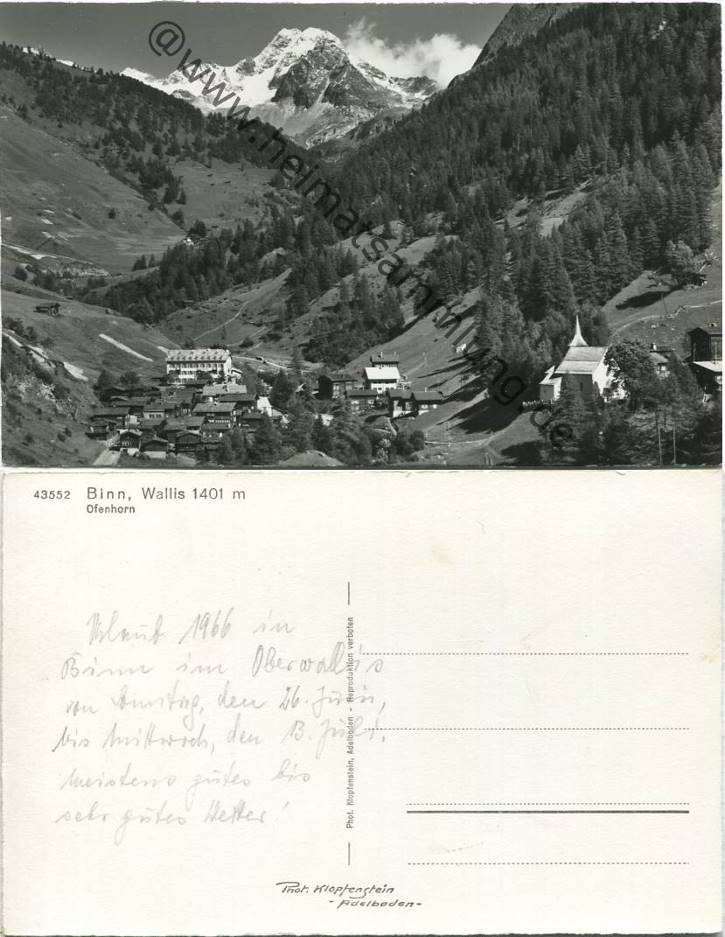 @www.heimatsammlung.de
43552 Binn, Wallis 1401 m
Ofenhorn
Urlaub 1966 in
Binn im Oberwallis
von Sonntag, den 26. Juni,
bis Mittwoch, den 13. Juli.
Meistens gutes bis
sehr gutes Wetter!
Phot. Klopfenstein, Adelboden - Reproduktion verboten
Phot. Klopfenstein
- Adelboden -